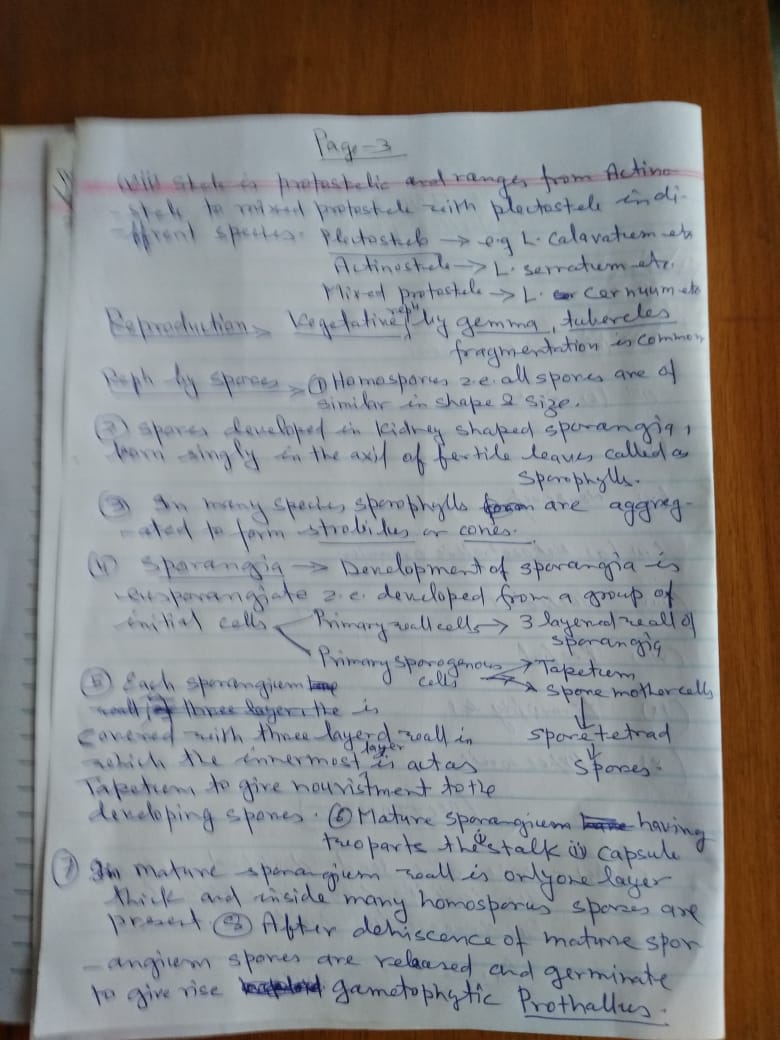 Page-3
(VIII) Stele is protostelic and ranges from Actino-
-stele to mixed protostele with plectostele in di-
-fferent species. Plectostele → e.g L. calavatum etc
Actinostele → L. serratum etc.
Mixed protostele → L. cernuum etc
Reproduction > Vegetative repn by gemma, tubercles
fragmentation is common
Reph by spores > (1) Homosporus i.e. all spores are of
similar in shape & size.
(2) spores developed in kidney shaped sporangia,
born singly in the axil of fertile leaves called as
Sporophylls.
(3) In many species sporophylls are aggreg-
-ated to form strobiles or cones.
(4) Sporangia → Development of sporangia is
eusporangiate i.e. developed from a group of
initial cells Primary wall cells → 3 layered wall of
sporangia
Primary sporogenous cells → Tapetum
→ spore mother cells
↓
spore tetrad
↓
spores.
(5) Each sporangium
wall three layer, the is
covered with three layerd wall in
which the innermost layer is act as
Tapetum to give nouristment to the
developing spores. (6) Mature sporangium having
two parts the (i) stalk (ii) capsule
(7) In mature sporangium wall is only one layer
thick and inside many homosporus spores are
present. (8) After dehiscence of mature spor
-angium spores are released and germinate
to give rise gametophytic Prothallus.